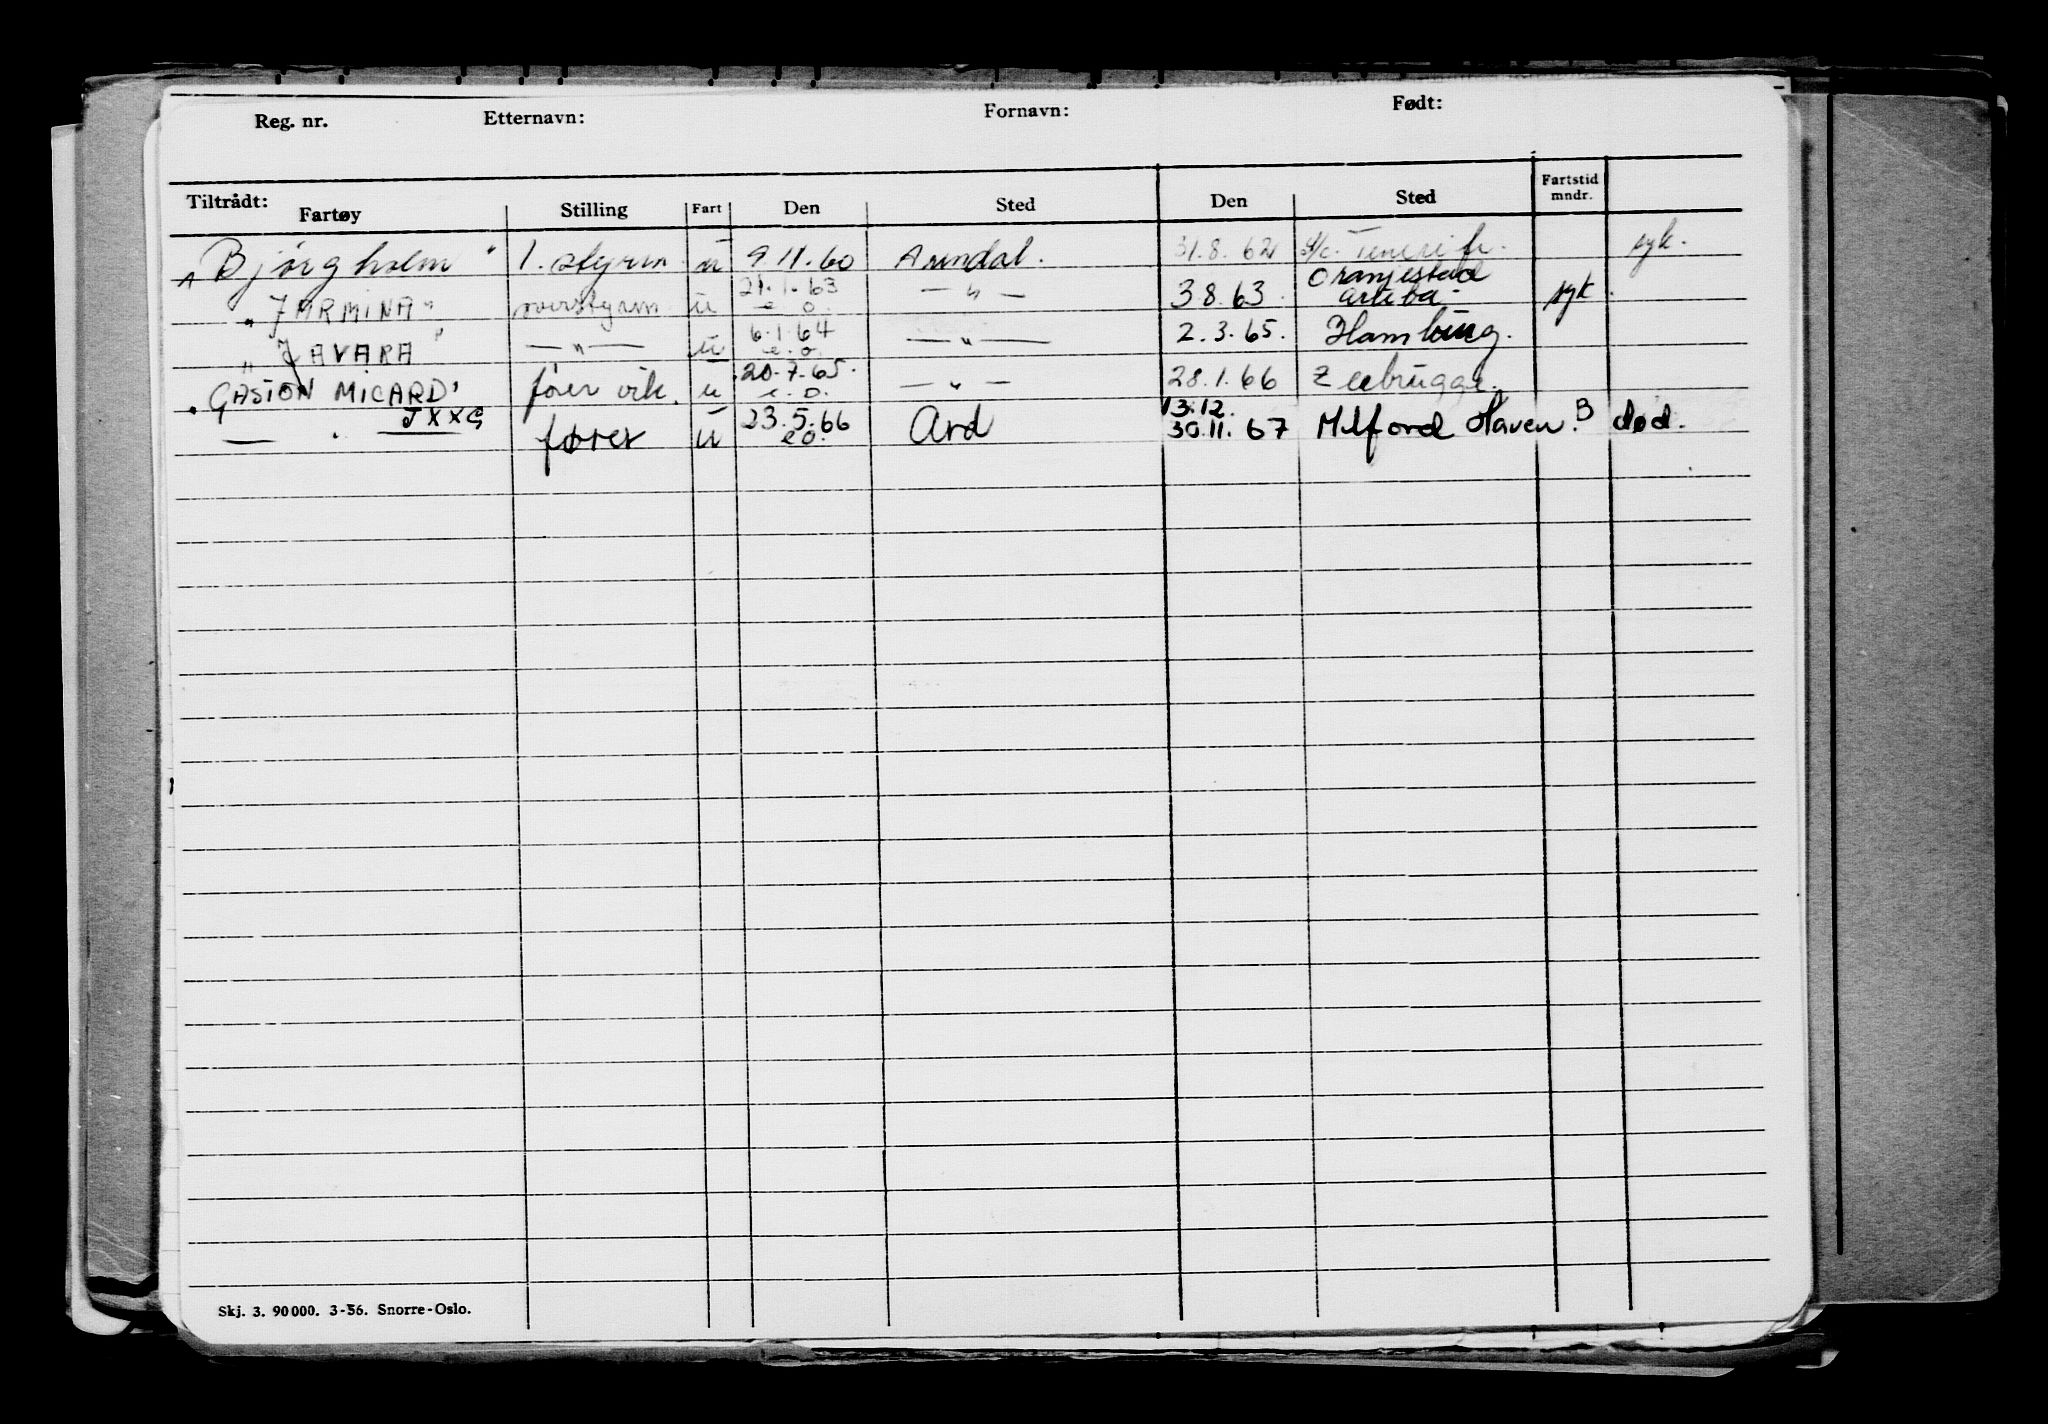 Reg. nr. Etternavn: Fornavn: Født:
Tiltrådt: Fartøy Stilling Fart Den Sted Den Sted Fartstid mndr.
"Bjørgholm" 1. styrm. u 9.11.60 Arendal. 31.8.62 Teneriffe. syk.
"JARMINA" overstyrm. u 21.1.63 e.o. — " — 3.8.63. Oranjestad Aruba syk.
"JAVARA" — " — u 6.1.64 e.o. — " — 2.3.65. Hamburg.
"GASTON MICARD" fører vik. u 20.7.65. e.o. — " — 28.1.66 Zeebrugge.
— " — JXXG fører u 23.5.66 e.o. Ard 13.12. 30.11.67 Milford Haven. B død.
Skj. 3. 90 000. 3-56. Snorre-Oslo.